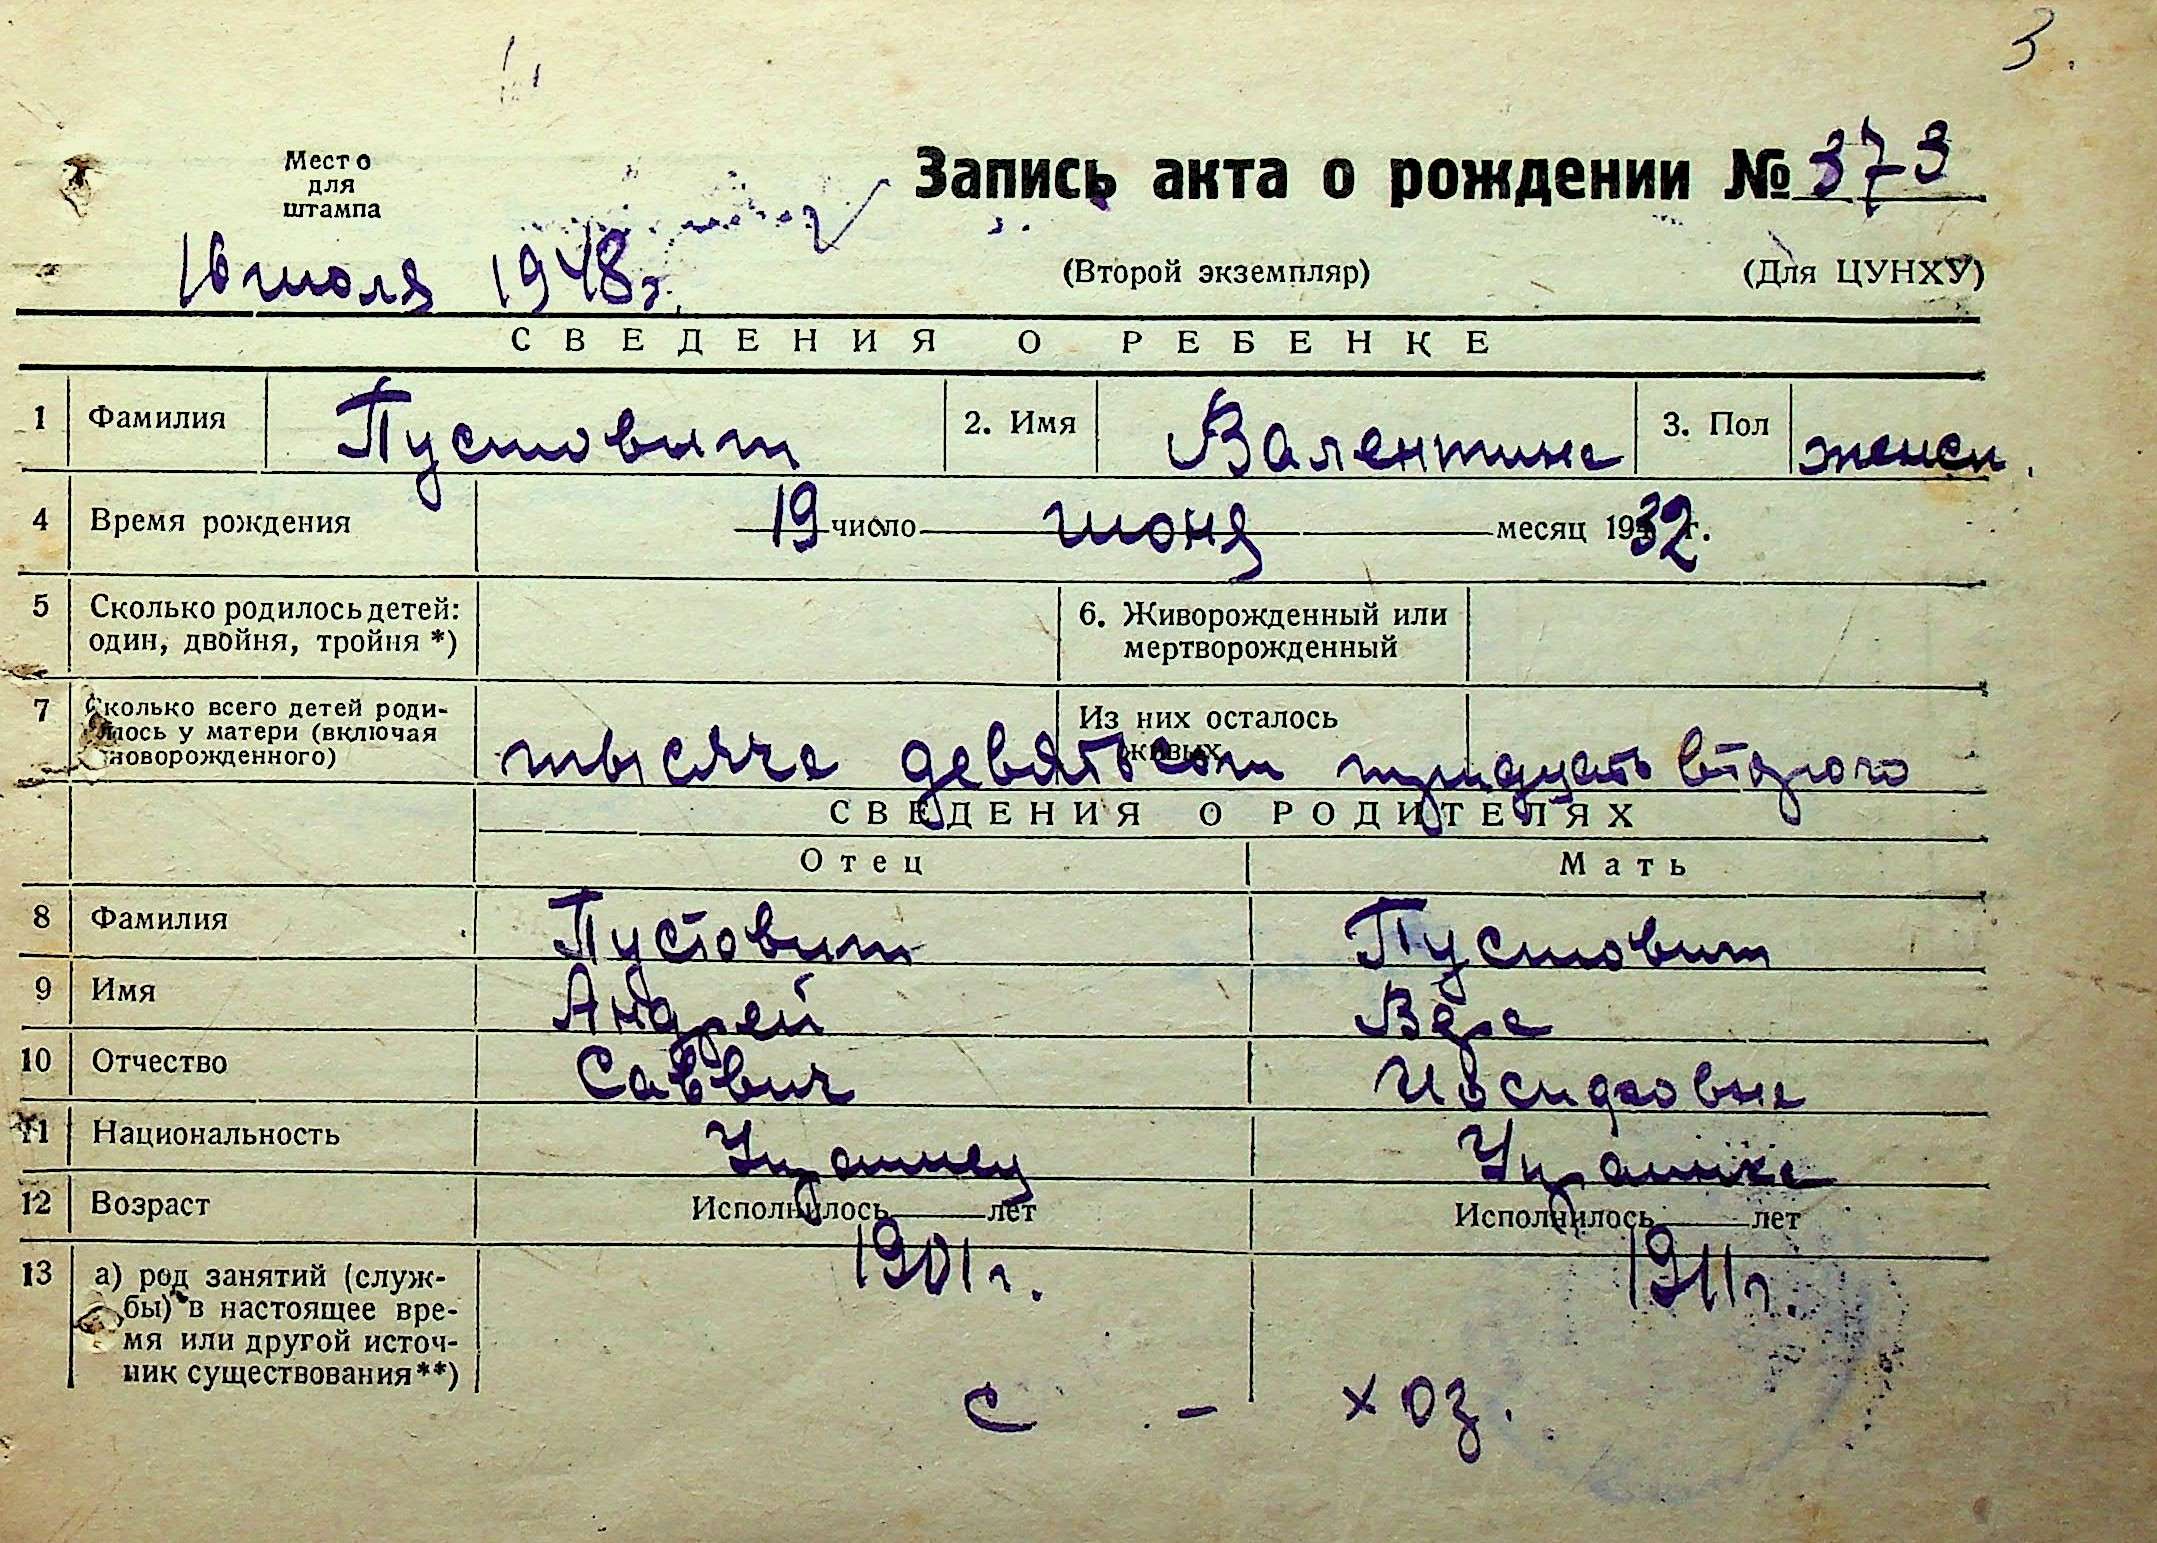 3.
Место
для
штампа
Запись акта о рождении № 373
16 июля 1948 г.
(Второй экземпляр) (Для ЦУНХУ)
СВЕДЕНИЯ О РЕБЕНКЕ
1 Фамилия Пустовит 2. Имя Валентина 3. Пол женск.
4 Время рождения 19 число июня месяц 1932 г.
5 Сколько родилось детей: один, двойня, тройня *) 6. Живорожденный или мертворожденный
7 Сколько всего детей родилось у матери (включая новорожденного) Из них осталось живых
тысяча девятьсот тридцать второго
СВЕДЕНИЯ О РОДИТЕЛЯХ
Отец Мать
8 Фамилия Пустовит Пустовит
9 Имя Андрей Вера
10 Отчество Саввич
11 Национальность Украинец Украинка
12 Возраст Исполнилось лет Исполнилось лет
1901 г. 1911 г.
13 а) род занятий (служ-
бы) в настоящее вре-
мя или другой источ-
ник существования**)
с - хоз.